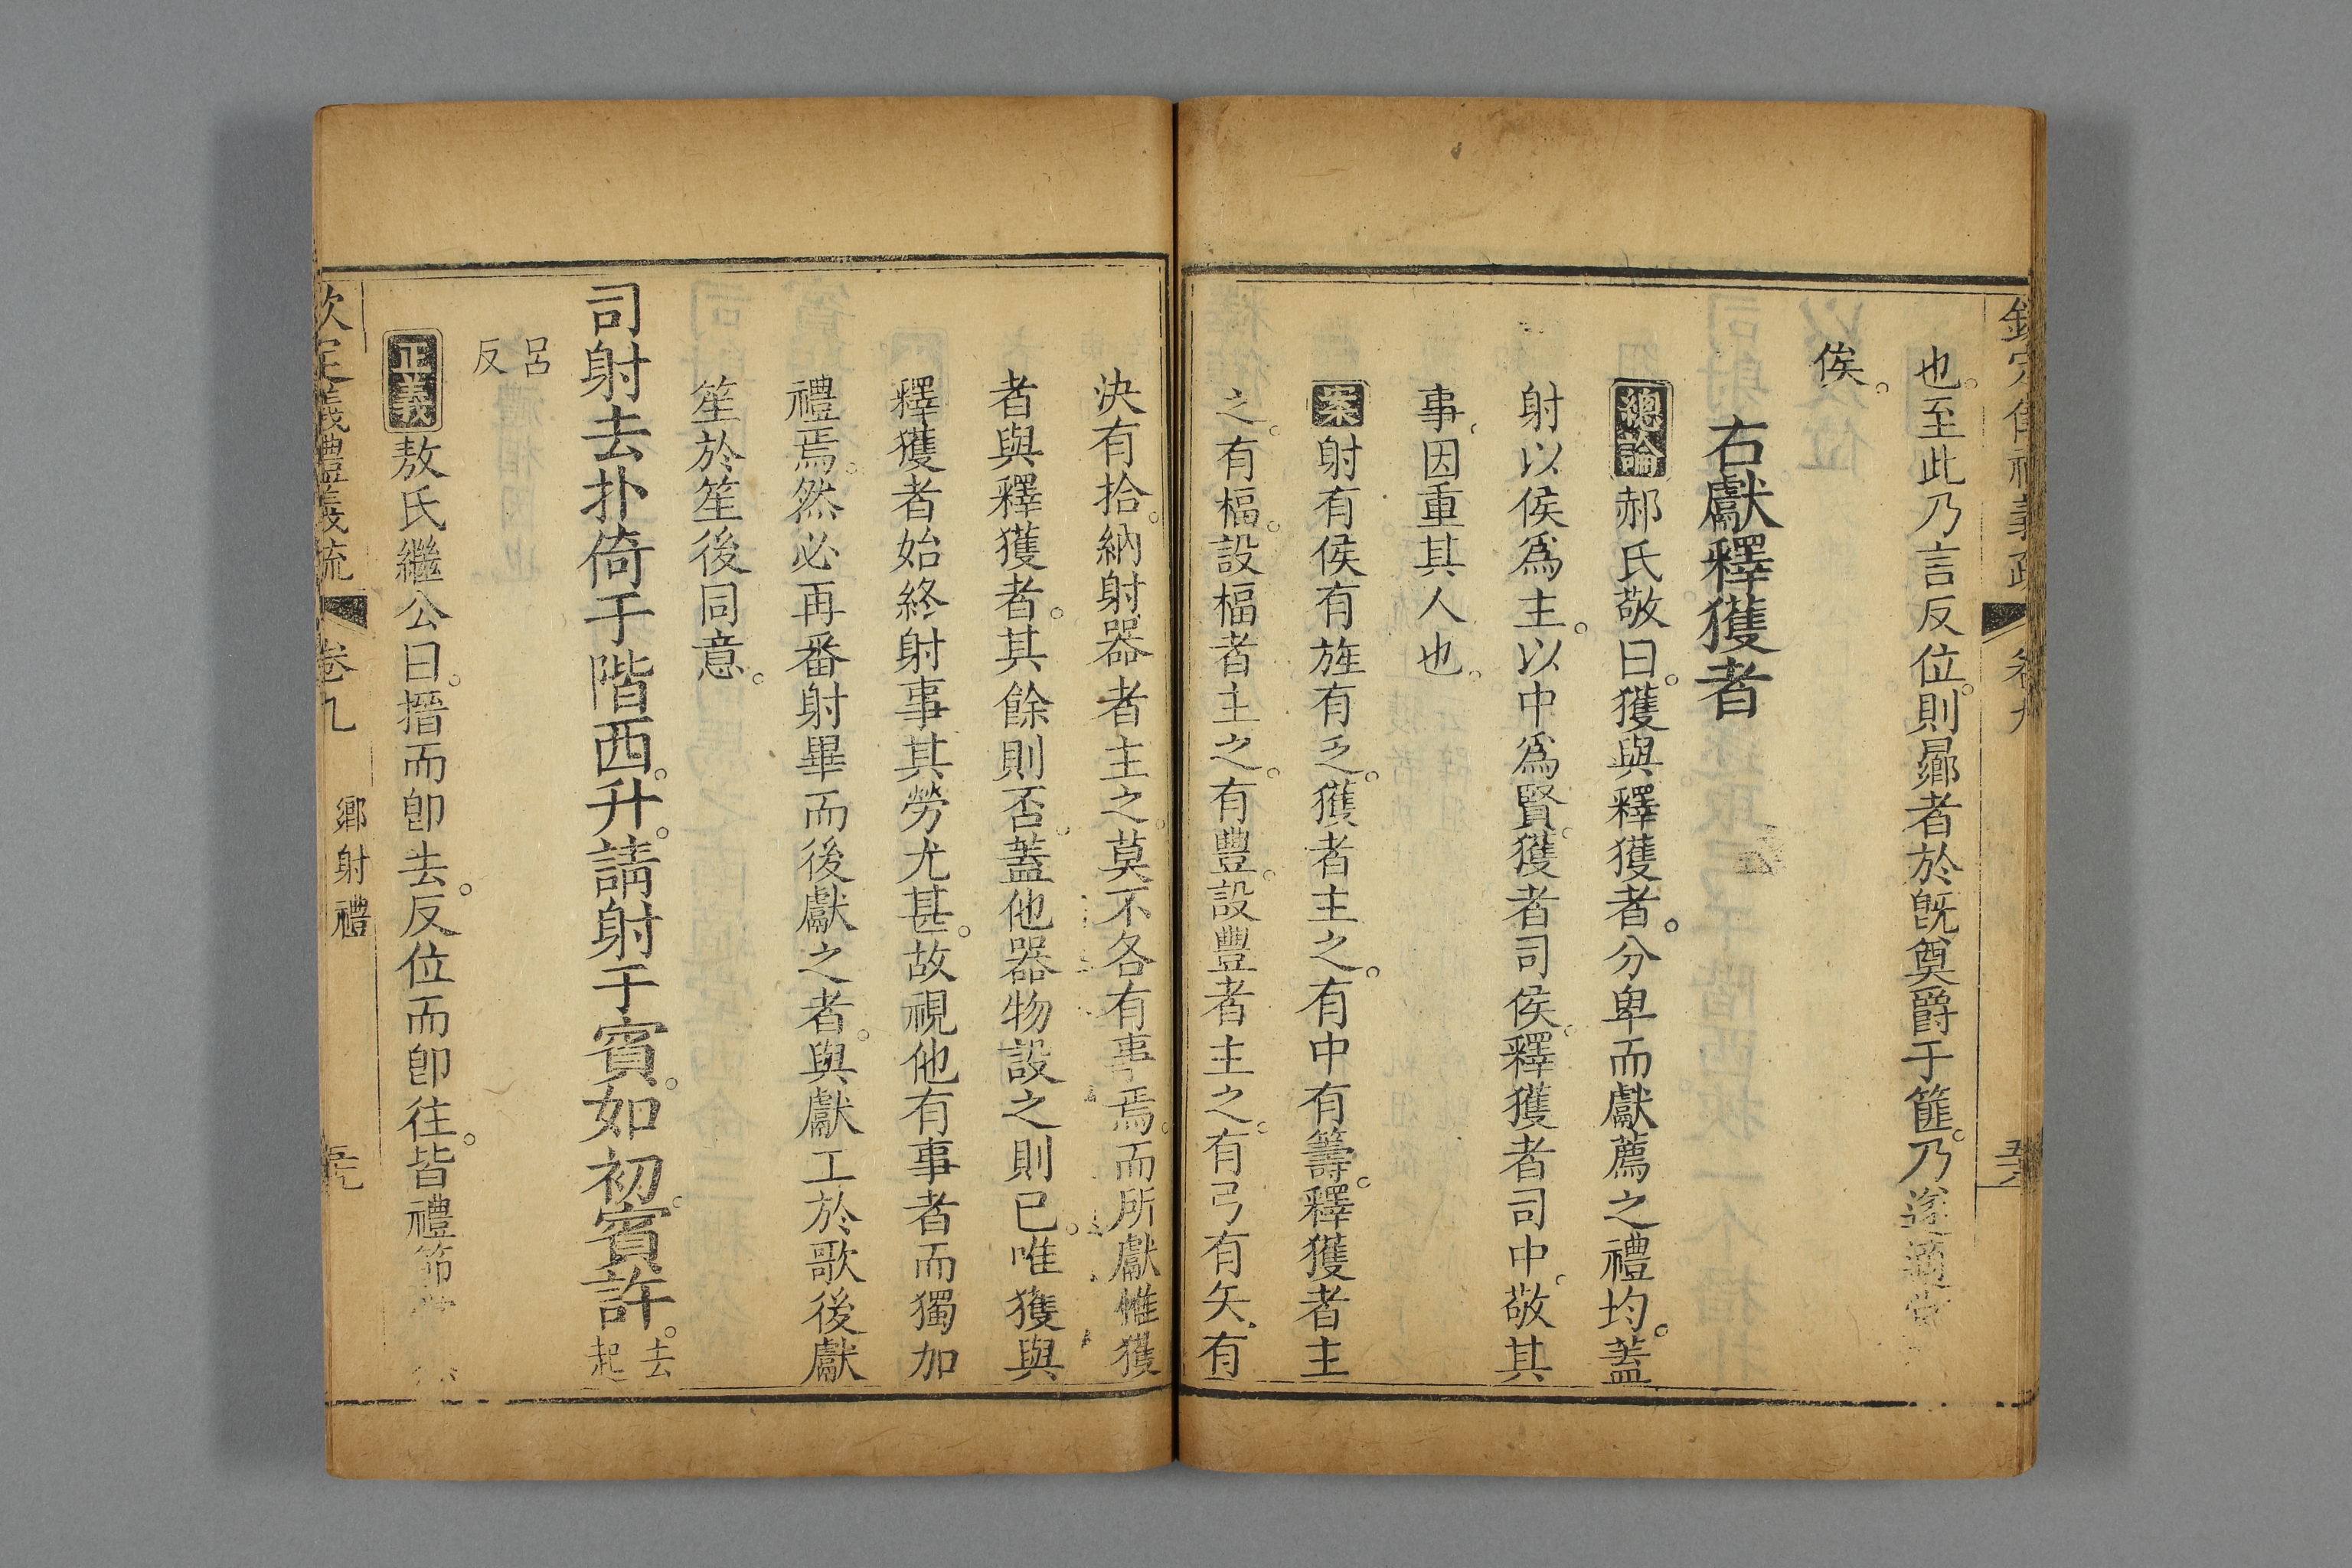 也。至此乃言反位。則曏者於旣奠爵于篚。乃遂適堂
侯。
右獻釋獲者
總論郝氏敬曰。獲與釋獲者。分卑而獻薦之禮均。蓋
射以侯爲主。以中爲賢。獲者司侯。釋獲者司中。敬其
事、因重其人也。
案射有侯有旌有乏。獲者主之。有中有籌。釋獲者主
之。有楅。設楅者主之。有豐。設豐者主之。有弓有矢、有
決有拾。納射器者主之。莫不各有事焉。而所獻惟獲
者與釋獲者。其餘則否。蓋他器物設之則已。唯獲與
釋獲者始終射事其勞尤甚。故視他有事者而獨加
禮焉。然必再番射畢而後獻之者。與獻工於歌後獻
笙於笙後同意。
司射去扑倚于階西。升。請射于賓。如初。賓許。去起
呂反
正義敖氏繼公曰。搢而卽去。反位而卽往。皆禮節
義禮義疏 卷九 鄉射禮